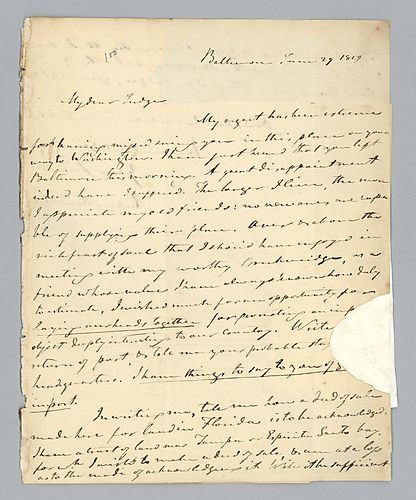 100
Baltimore June 29 1829
My dear Judge
My regret has been extreme
for having missed seeing you in this place on your
way to Washington. I have just heard that you left
Baltimore this morning. A great disappointment
indeed have I suffered. The longer I live, the more
I appreciate my old friends: no new ones are capa
ble of supplying their place. Over & above the
rich feast of soul that I should have enjoyed in
meeting with my worthy Breckenridge, as a
friend whose value I have always known how duly
to estimate, I wished much for an opportunity for
laying our heads together for promoting an im
object deeply interesting to our country. Write
return of post, & tell me your probable sta
headquarters. I have things to say to you of g
import.
In writing me, tell me how a Deed of sale
made here for land in Florida is to be acknowledged.
I have a tract of land near Tampa or Espiritu Santo bay,
for wh. I wish to make a deed of sale, & am at a loss
as to the mode of acknowledging it. Will the sufficient